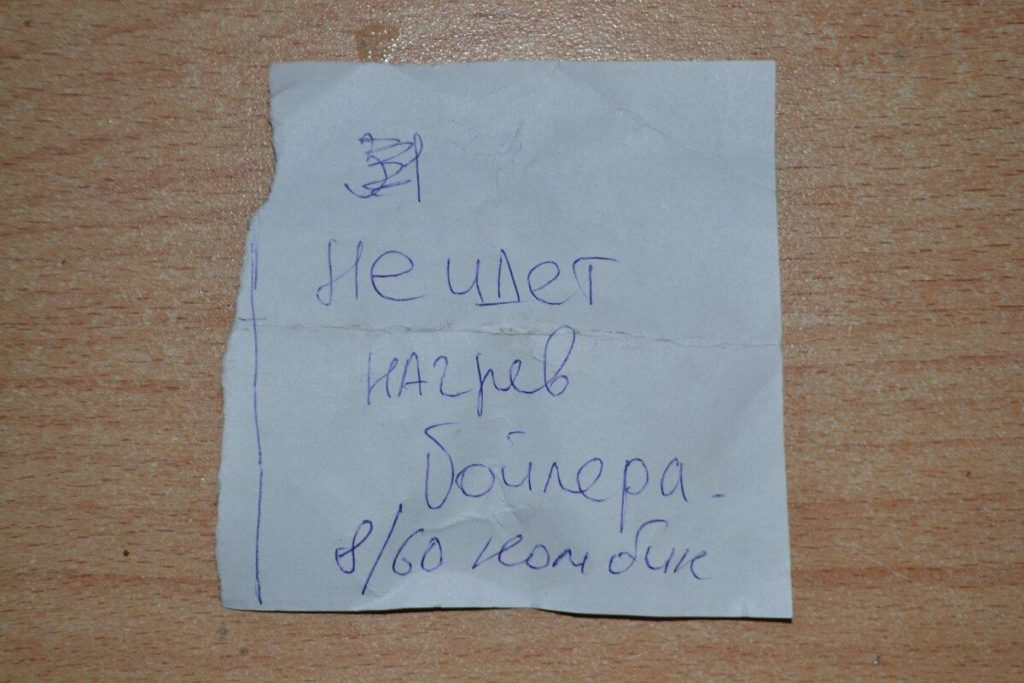 Не идет
нагрев
бойлера.
8/60 комбик